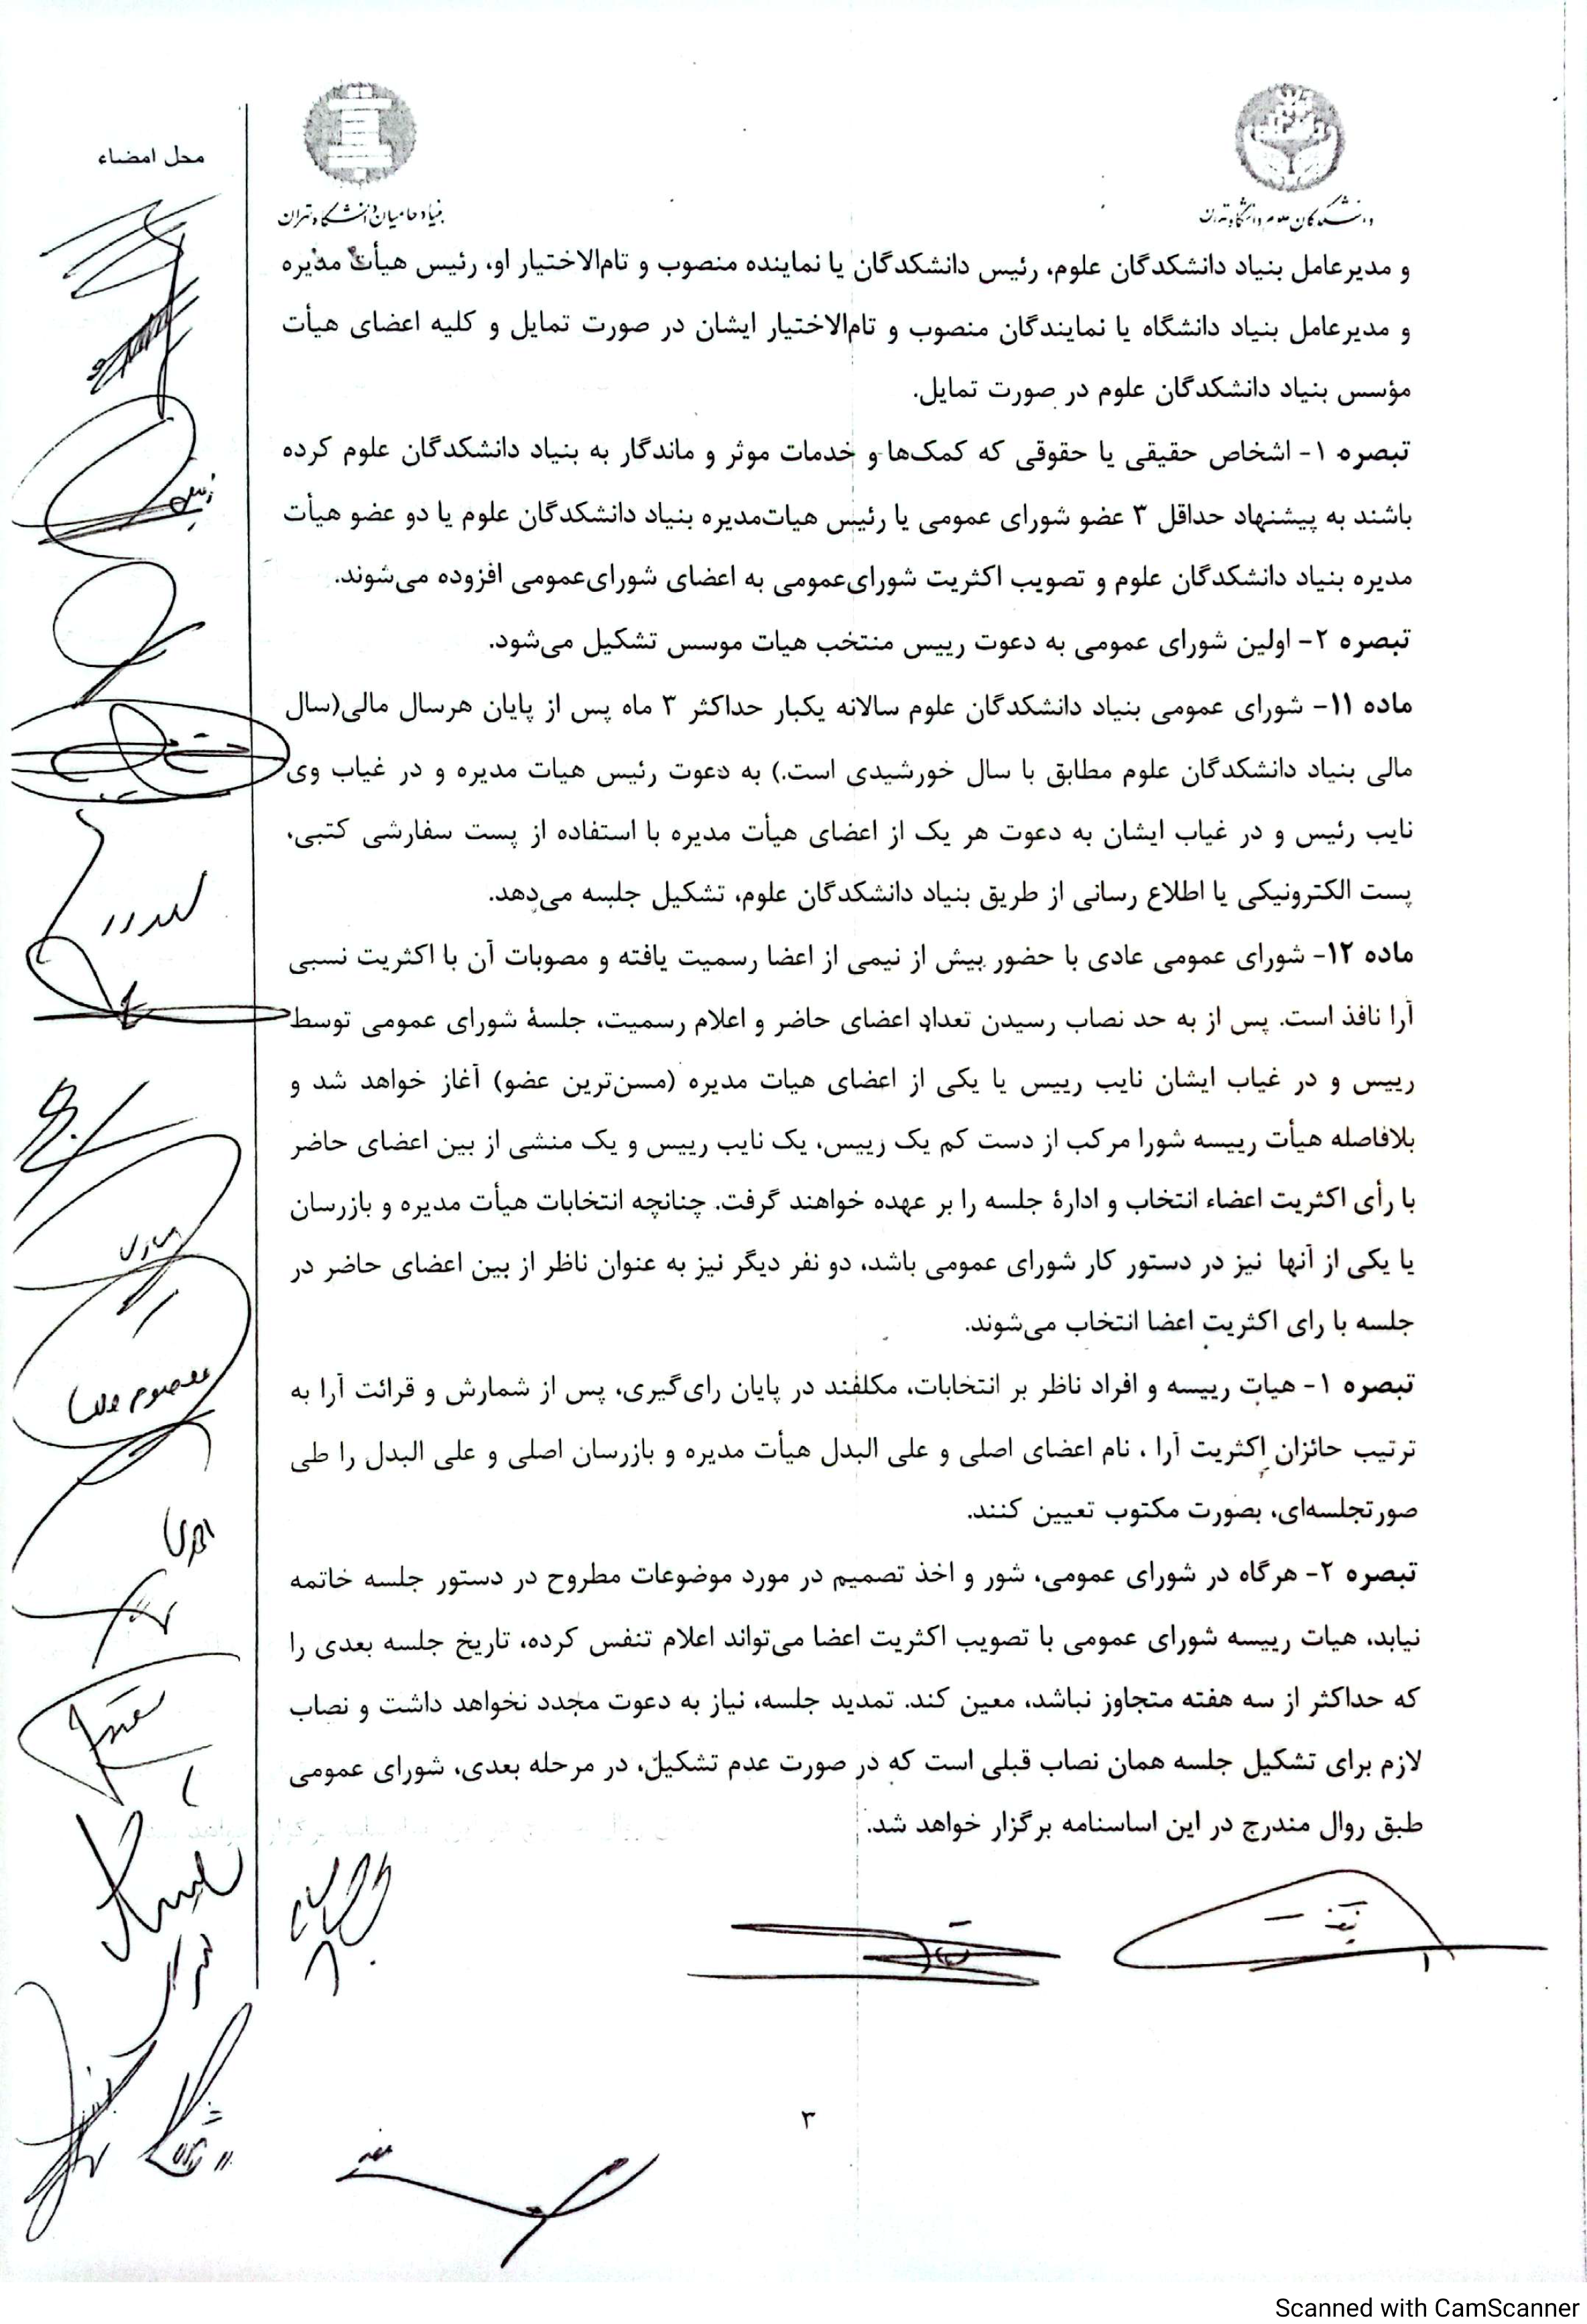 محل امضاء
دانشکدگان علوم دانشگاه تهران
بنیاد حامیان دانشگاه تهران
و مدیرعامل بنیاد دانشکدگان علوم، رئیس دانشکدگان یا نماینده منصوب و تام‌الاختیار او، رئیس هیأت مدیره
و مدیرعامل بنیاد دانشگاه یا نمایندگان منصوب و تام‌الاختیار ایشان در صورت تمایل و کلیه اعضای هیأت
مؤسس بنیاد دانشکدگان علوم در صورت تمایل.
تبصره ۱- اشخاص حقیقی یا حقوقی که کمک‌ها و خدمات موثر و ماندگار به بنیاد دانشکدگان علوم کرده
باشند به پیشنهاد حداقل ۳ عضو شورای عمومی یا رئیس هیات‌مدیره بنیاد دانشکدگان علوم یا دو عضو هیأت
مدیره بنیاد دانشکدگان علوم و تصویب اکثریت شورای‌عمومی به اعضای شورای‌عمومی افزوده می‌شوند.
تبصره ۲- اولین شورای عمومی به دعوت رییس منتخب هیات موسس تشکیل می‌شود.
ماده ۱۱- شورای عمومی بنیاد دانشکدگان علوم سالانه یکبار حداکثر ۳ ماه پس از پایان هرسال مالی(سال
مالی بنیاد دانشکدگان علوم مطابق با سال خورشیدی است.) به دعوت رئیس هیات مدیره و در غیاب وی
نایب رئیس و در غیاب ایشان به دعوت هر یک از اعضای هیأت مدیره با استفاده از پست سفارشی کتبی،
پست الکترونیکی یا اطلاع رسانی از طریق بنیاد دانشکدگان علوم، تشکیل جلسه می‌دهد.
ماده ۱۲- شورای عمومی عادی با حضور بیش از نیمی از اعضا رسمیت یافته و مصوبات آن با اکثریت نسبی
آرا نافذ است. پس از به حد نصاب رسیدن تعداد اعضای حاضر و اعلام رسمیت، جلسهٔ شورای عمومی توسط
رییس و در غیاب ایشان نایب رییس یا یکی از اعضای هیات مدیره (مسن‌ترین عضو) آغاز خواهد شد و
بلافاصله هیأت رییسه شورا مرکب از دست کم یک رییس، یک نایب رییس و یک منشی از بین اعضای حاضر
با رأی اکثریت اعضاء انتخاب و ادارهٔ جلسه را بر عهده خواهند گرفت. چنانچه انتخابات هیأت مدیره و بازرسان
یا یکی از آنها نیز در دستور کار شورای عمومی باشد، دو نفر دیگر نیز به عنوان ناظر از بین اعضای حاضر در
جلسه با رای اکثریت اعضا انتخاب می‌شوند.
تبصره ۱- هیات رییسه و افراد ناظر بر انتخابات، مکلفند در پایان رای‌گیری، پس از شمارش و قرائت آرا به
ترتیب حائزان اکثریت آرا ، نام اعضای اصلی و علی البدل هیأت مدیره و بازرسان اصلی و علی البدل را طی
صورتجلسه‌ای، بصورت مکتوب تعیین کنند.
تبصره ۲- هرگاه در شورای عمومی، شور و اخذ تصمیم در مورد موضوعات مطروح در دستور جلسه خاتمه
نیابد، هیات رییسه شورای عمومی با تصویب اکثریت اعضا می‌تواند اعلام تنفس کرده، تاریخ جلسه بعدی را
که حداکثر از سه هفته متجاوز نباشد، معین کند. تمدید جلسه، نیاز به دعوت مجدد نخواهد داشت و نصاب
لازم برای تشکیل جلسه همان نصاب قبلی است که در صورت عدم تشکیل، در مرحله بعدی، شورای عمومی
طبق روال مندرج در این اساسنامه برگزار خواهد شد.
۳
Scanned with CamScanner